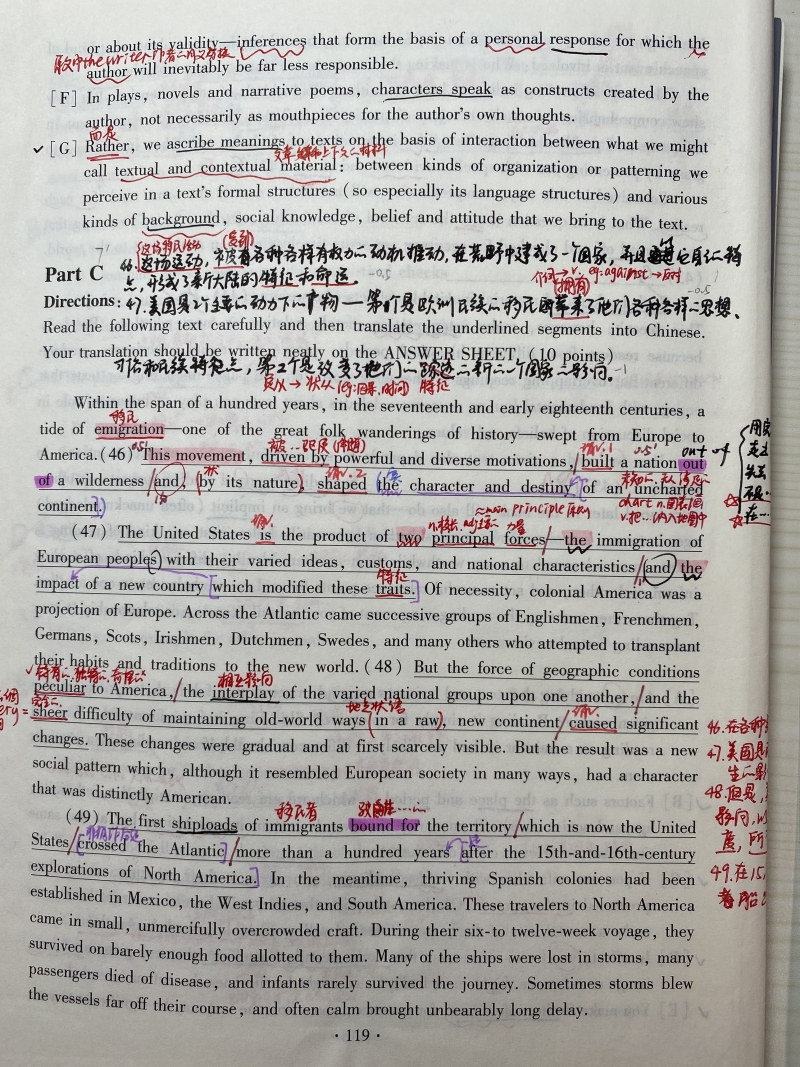 or about its validity—inferences that form the basis of a personal response for which the
author will inevitably be far less responsible.
[F] In plays, novels and narrative poems, characters speak as constructs created by the
author, not necessarily as mouthpieces for the author's own thoughts.
而是
✓ [G] Rather, we ascribe meanings to texts on the basis of interaction between what we might
call textual and contextual material: between kinds of organization or patterning we
perceive in a text's formal structures (so especially its language structures) and various
kinds of background, social knowledge, belief and attitude that we bring to the text.
7'
(这场移民活动 (受到)
Part C 46. 这场运动,被各种各样有权力的动机推动,在荒野中建成了一个国家,并且通过它自己的特
点,形成了新大陆的特征和命运。 -0.5
介词→v. eg: against→反对
(拥有) -0.5
Directions: 47. 美国是2个主要的动力下的产物——第1个是欧洲民族的移民带来了他们各种各样的思想、
Read the following text carefully and then translate the underlined segments into Chinese.
Your translation should be written neatly on the ANSWER SHEET. (10 points)
习俗和民族特点,第2个是改变了他们的一个新的国家的影响。 -1
定从→状从 (eg: 因果, 时间) 特征
Within the span of a hundred years, in the seventeenth and early eighteenth centuries, a
移民
tide of emigration—one of the great folk wanderings of history—swept from Europe to
America. (46) This movement, driven by powerful and diverse motivations, built a nation out
of a wilderness and, by its nature, shaped the character and destiny of an uncharted
continent.
≈main principle
(47) The United States is the product of two principal forces—the immigration of
European peoples with their varied ideas, customs, and national characteristics and the
特征
impact of a new country which modified these traits. Of necessity, colonial America was a
projection of Europe. Across the Atlantic came successive groups of Englishmen, Frenchmen,
Germans, Scots, Irishmen, Dutchmen, Swedes, and many others who attempted to transplant
their habits and traditions to the new world. (48) But the force of geographic conditions
✓特有的, 独特的, 奇怪的 相互影响
peculiar to America, the interplay of the varied national groups upon one another, and the
完全的 地点状语
sheer difficulty of maintaining old-world ways in a raw, new continent caused significant
changes. These changes were gradual and at first scarcely visible. But the result was a new
social pattern which, although it resembled European society in many ways, had a character
that was distinctly American.
移民者
(49) The first shiploads of immigrants bound for the territory which is now the United
States crossed the Atlantic more than a hundred years after the 15th-and-16th-century
explorations of North America. In the meantime, thriving Spanish colonies had been
established in Mexico, the West Indies, and South America. These travelers to North America
came in small, unmercifully overcrowded craft. During their six-to twelve-week voyage, they
survived on barely enough food allotted to them. Many of the ships were lost in storms, many
passengers died of disease, and infants rarely survived the journey. Sometimes storms blew
the vessels far off their course, and often calm brought unbearably long delay.
out of
46. 在各种
47. 美国是
48. 但是,
49. 在15
· 119 ·